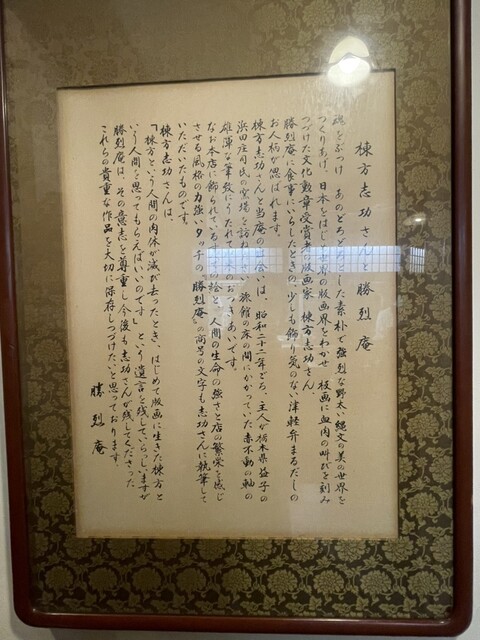 棟方志功さんと勝烈庵
魂をぶつけ あのどろどろとした素朴で強烈な野太い縄文の美の世界を
つくりあげ、日本をはじめ世界の版画界をわかせ 板画に血肉の叫びを刻み
つづけた文化勲章受賞者の版画家 棟方志功さん、
勝烈庵に食事にいらしたときの、少しも飾り気のない津軽弁まるだしの
お人柄が偲ばれます。
棟方志功さんと当庵の出会いは、昭和二十二年ごろ、主人が栃木県益子の
浜田庄司氏の窯場を訪ね 旅館の床の間にかかっていた赤不動の軸の
雄渾な筆致にうたれて のおつきあいです。
なお本店に飾られている の絵と、人間の生命の強さと店の繁栄を感じ
させる風格の力強いタッチの“勝烈庵”の商号の文字も志功さんに執筆して
いただいたものです。
棟方志功さんは、
「棟方という人間の肉体が滅び去ったとき、はじめて版画に生きた棟方と
いう人間を思ってもらえばいいのです」という遺言を残していらっしいますが
勝烈庵は、その意志を尊重し今後も志功さんが残してくださった
これらの貴重な作品を大切に保存しつづけたいと思っております。
勝烈庵